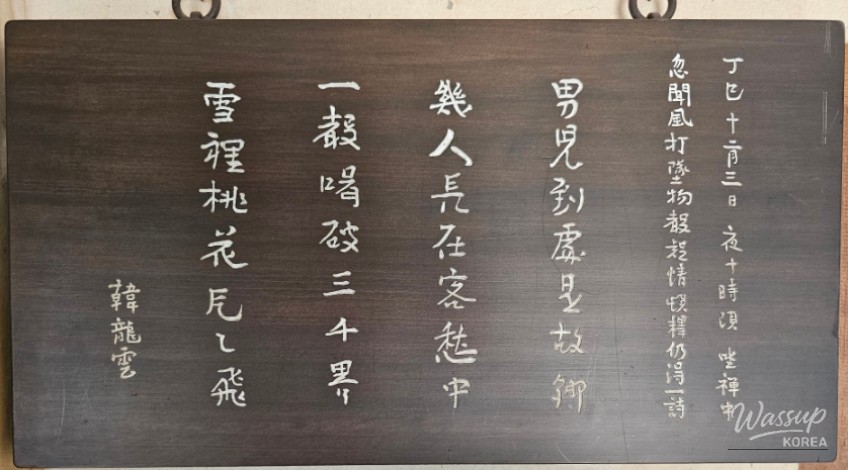 丁巳十二月三日 夜十時頃 坐禪中
忽聞風打墜物聲疑情頓釋仍得一詩
男兒到處是故鄕
幾人長在客愁中
一聲喝破三千界
雪裡桃花片〻飛
韓龍雲
Wassup
KOREA